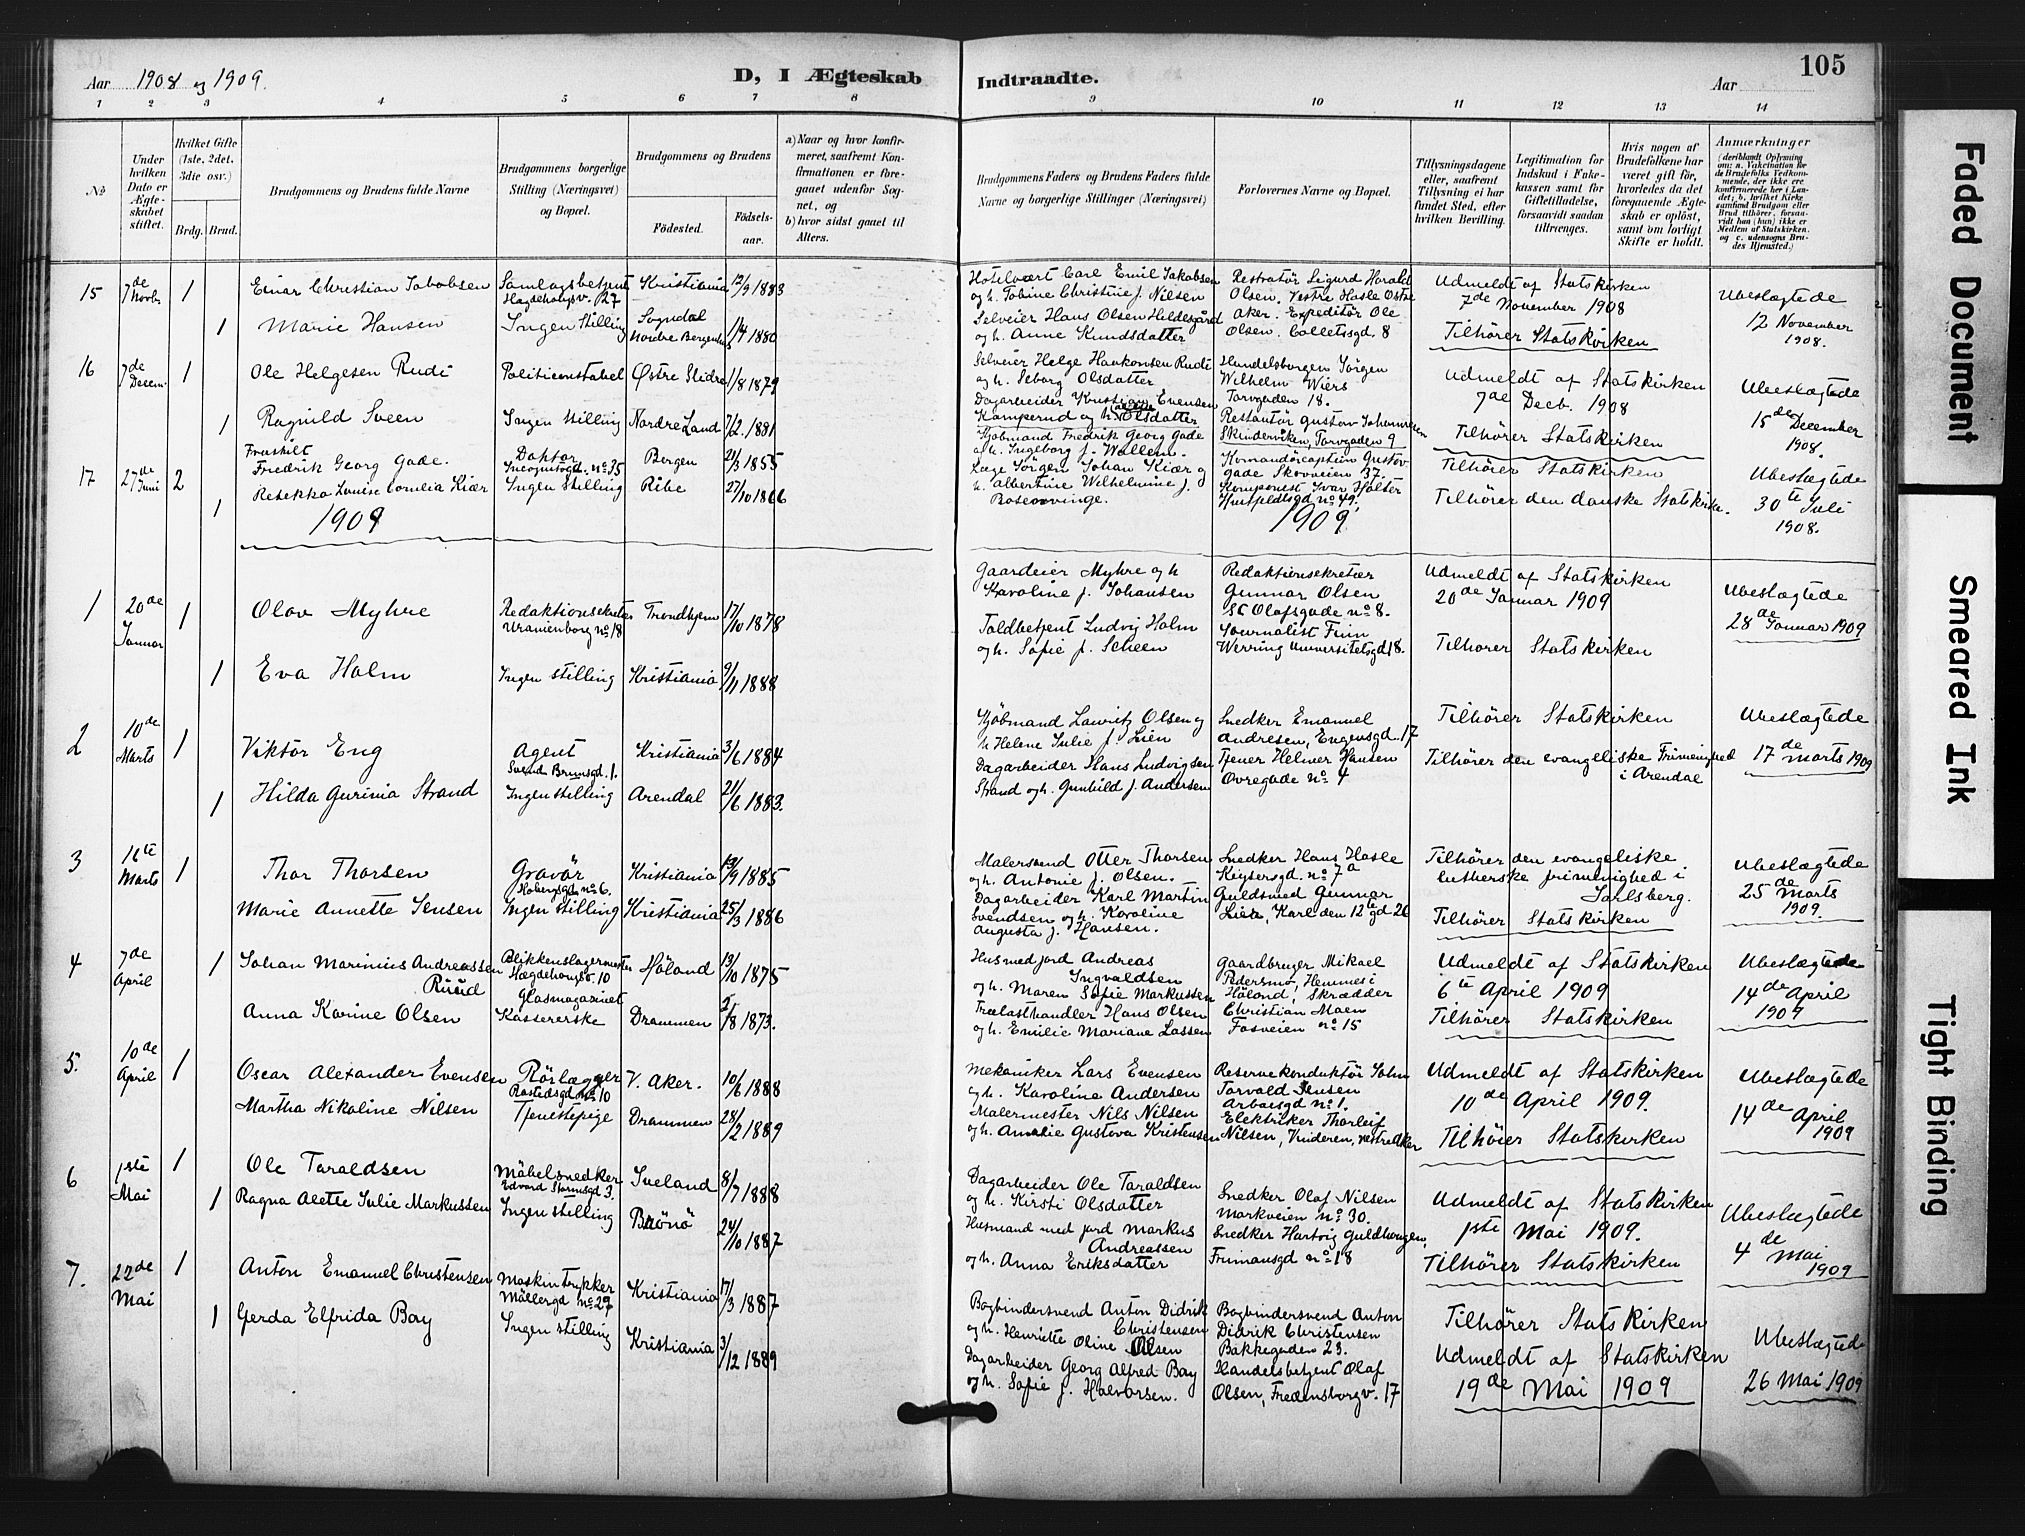 Aar 1908 og 1909.
D, I Ægteskab
Indtraadte.
Aar
105
1 2 3 4 5 6 7 8 9 10 11 12 13 14
No
Under hvilken Dato er Ægteskabet stiftet.
Hvilket Gifte (1ste, 2det, 3die osv.)
Brdg. Brud.
Brudgommens og Brudens fulde Navne
Brudgommens borgerlige Stilling (Næringsvei) og Bopæl.
Brudgommens og Brudens
Fødested.
Fødselsaar.
a) Naar og hvor konfirmeret, saafremt Konfirmationen er foregaaet udenfor Sognet, og
b) hvor sidst gaaet til Alters.
Brudgommens Faders og Brudens Faders fulde Navne og borgerlige Stillinger (Næringsvei)
Forlovernes Navne og Bopæl.
Tillysningsdagene eller, saafremt Tillysning ei har fundet Sted, efter hvilken Bevilling.
Legitimation for Indskud i Enkekassen samt for Giftetilladelse, forsaavidt saadan tiltrænges.
Hvis nogen af Brudefolkene har været gift før, hvorledes da det foregaaende Ægteskab er opløst, samt om lovligt Skifte er holdt.
Anmærkninger
(deriblandt Oplysning om: a. Vakcination for de Brudefolks Vedkommende, der ikke ere konfirmerede her i Landet; b. hvilket Kirkesamfund Brudgom eller Brud tilhører, forsaavidt han (hun) ikke er Medlem af Statskirken. og c. udensogns Brudes Hjemsted.)
15
7de Novbr
1
Einar Christian Jakobsen
Samlagsbetjent
Hægdehougsv. 27
Kristiania
12/9 1883
Hotelvært Carl Emil Jakobsen
og h. Tobine Christine f. Nilsen
Restratør Sigurd Harald
Olsen. Vestre Hasle Østre
Udmeldt af Statskirken
7de November 1908
Ubeslægtede
12 November
1908.
1
Marie Hansen
Ingen Stilling
Sogndal
Nordre Bergenhus
1/4 1880
Selveier Hans Olsen Heldesgård
og h. Anne Knudsdatter
Aker. Expeditør Ole
Olsen. Colletsgd. 8
Tilhører Statskirken
16
7de Decem.
1
Ole Helgesen Rudi
Politikonstabel
Østre Slidre
1/8 1879
Selveier Helge Haakonsen Rudi
og h. Seborg Olsdatter
Handelsborgen Jørgen
Wilhelm Wiers
Torvgaden 18.
Udmeldt af Statskirken
7de Decb. 1908
Ubeslægtede
15de December
1908.
1
Ragnild Sveen
Ingen Stilling
Nordre Land
7/2 1881
Dagarbeider Kristian Evensen
Kamperud og h. Olsdatter
Restantør Gustav Johannesen
Skinderviken, Torvgaden 9
Tilhører Statskirken
17
27de Juni
2
Fraskilt
Fredrik Georg Gade.
Doktor
Incognitogd. no 35
Bergen
21/3 1855
Kjøbmand Fredrik Georg Gade
og h. Ingeborg f. Wallem.
Kommandørcaptein Gustav
Gade Skovveien 37.
Tilhører Statskirken
Ubeslægtede
30te Juli
1908.
1
Rebekka Louise Cornelia Kiær
Ingen Stilling
Ribe
27/10 1866
Læge Jørgen Johan Kiær og
h. Albertine Wilhelmine f.
Rosenvinge.
Komponist Ivar Holter
Huitfeldtsgd no 49.
Tilhører den danske Statskirke.
1909
1909
1
20de Januar
1
Olav Myhre
Redaktionsekretær
Uranienborg no 18
Trondhjem
17/10 1878
Gaardeier Myhre og h
Karoline f. Johansen
Redaktionsekretær
Gunnar Olsen
St Olafsgade no 8.
Udmeldt af Statskirken
20de Januar 1909
Ubeslægtede
28de Januar 1909
1
Eva Holm
Ingen stilling
Kristiania
9/11 1888
Toldbetjent Ludvig Holm
og h. Sofie f. Scheen
Journalist Finn
Werring Universitetsgd 18.
Tilhører Statskirken
2
10de Marts
1
Viktor Eng
Agent
Svend Brunsgd. 1.
Kristiania
3/6 1884
Kjøbmand Lauritz Olsen og
h Helene Julie f. Lien
Snedker Emanuel
Andresen, Eugensgd. 17
Tilhører Statskirken
Ubeslægtede
17de marts 1909
1
Hilda Gurinia Strand
Ingen stilling
Arendal
21/6 1883.
Dagarbeider Hans Ludvigsen
Strand og h. Gunhild f. Andersen
Tjener Helmer Hansen
Øvregade no 4
Tilhører den evangeliske Frimenighed
i Arendal
3
16te Marts
1
Thor Thorsen
Gravør
Hobergsgd no 6.
Kristiania
19/9 1885
Malersvend Otter Thorsen
og h. Antonie f. Olsen.
Snedker Hans Hasle
Keysersgd. no 7a
Tilhører den evangeliske
lutherske frimenighed i
Jarlsberg.
Ubeslægtede
25de Marts
1909.
Marie Annette Jensen
Ingen stilling
Kristiania
25/3 1886
Dagarbeider Karl Martin
Svendsen og h. Karoline
Augusta f. Hansen.
Guldsmed Gunnar
Lien, Karl den 12te gd 26
Tilhører Statskirken
4
7de April
1
Johan Marinius Andreassen
Ruud
Blikkenslagermester
Hægdehougsv. 10
Høland
13/10 1875
Husmedjord Andreas
Ingvaldsen
og h. Maren Sofie Markussen
Gaardbruger Mikael
Pedersmo, Hemnes i
Høland, Skrædder
Udmeldt af Statskirken
6te April 1909
Ubeslægtede
14de April
1909
Anna Karine Olsen
Glasmagasinet
Kassererske
Drammen
2/8 1873.
Trælasthandler Hans Olsen
og h. Emilie Mariane Lassen
Christian Moen
Fosveien no 15
Tilhører Statskirken
5.
10de April
1
Oscar Alexander Evensen
Rørlægger
Rostedsgd no 10
V. Aker.
10/6 1888
Mekaniker Lars Evensen
og h. Karoline Andersen
Reservekonduktør John
Torvald Jensen
Arbaisgd no 1.
Udmeldt af Statskirken
10de April 1909.
Ubeslægtede
14de April
1909
Martha Nikoline Nilsen
Tjenestepige
Drammen
28/2 1889
Malermester Nils Nilsen
og h. Amalie Gustova Kristensen
Elektriker Thorleif
Nilsen, Vinderen, vestre Aker
Tilhører Statskirken
6
1ste Mai
1
Ole Taraldsen
Møbelsnedker
Edvard Stormsgd 3.
Iveland
8/7 1888
Dagarbeider Ole Taraldsen
og h. Kirsti Olsdatter
Snedker Olaf Nilsen
Markveien no 30.
Udmeldt af Statskirken
1ste Mai 1909.
Ubeslægtede
4de Mai
1909
1
Ragna Alette Julie Markussen
Ingen stilling
Brønø
24/10 1887
Husmand med jord Markus
Andreassen
og h. Anna Eriksdatter
Snedker Hartvig Guldbergen,
Frimansgd no 18
Tilhører Statskirken
7.
22de Mai
1
Anton Emanuel Christensen
Maskintrykker
Møllergd no 29
Kristiania
17/3 1887
Bogbindersvend Anton Didrik
Christensen
og h. Henriette Oline Olsen
Bogbindersvend Anton
Didrik Christensen
Bakkegaden 23.
Tilhører Statskirken
Ubeslægtede
26 Mai 1909
1
Gerda Elfrida Bay
Ingen stilling
Kristiania
3/12 1889
Dagarbeider Georg Alfred Bay
og h. Sofie f. Halvorsen.
Handelsbetjent Olaf
Olsen, Fredensborgv. 17
Udmeldt af Statskirken
19de Mai 1909
Faded Document
Smeared Ink
Tight Binding